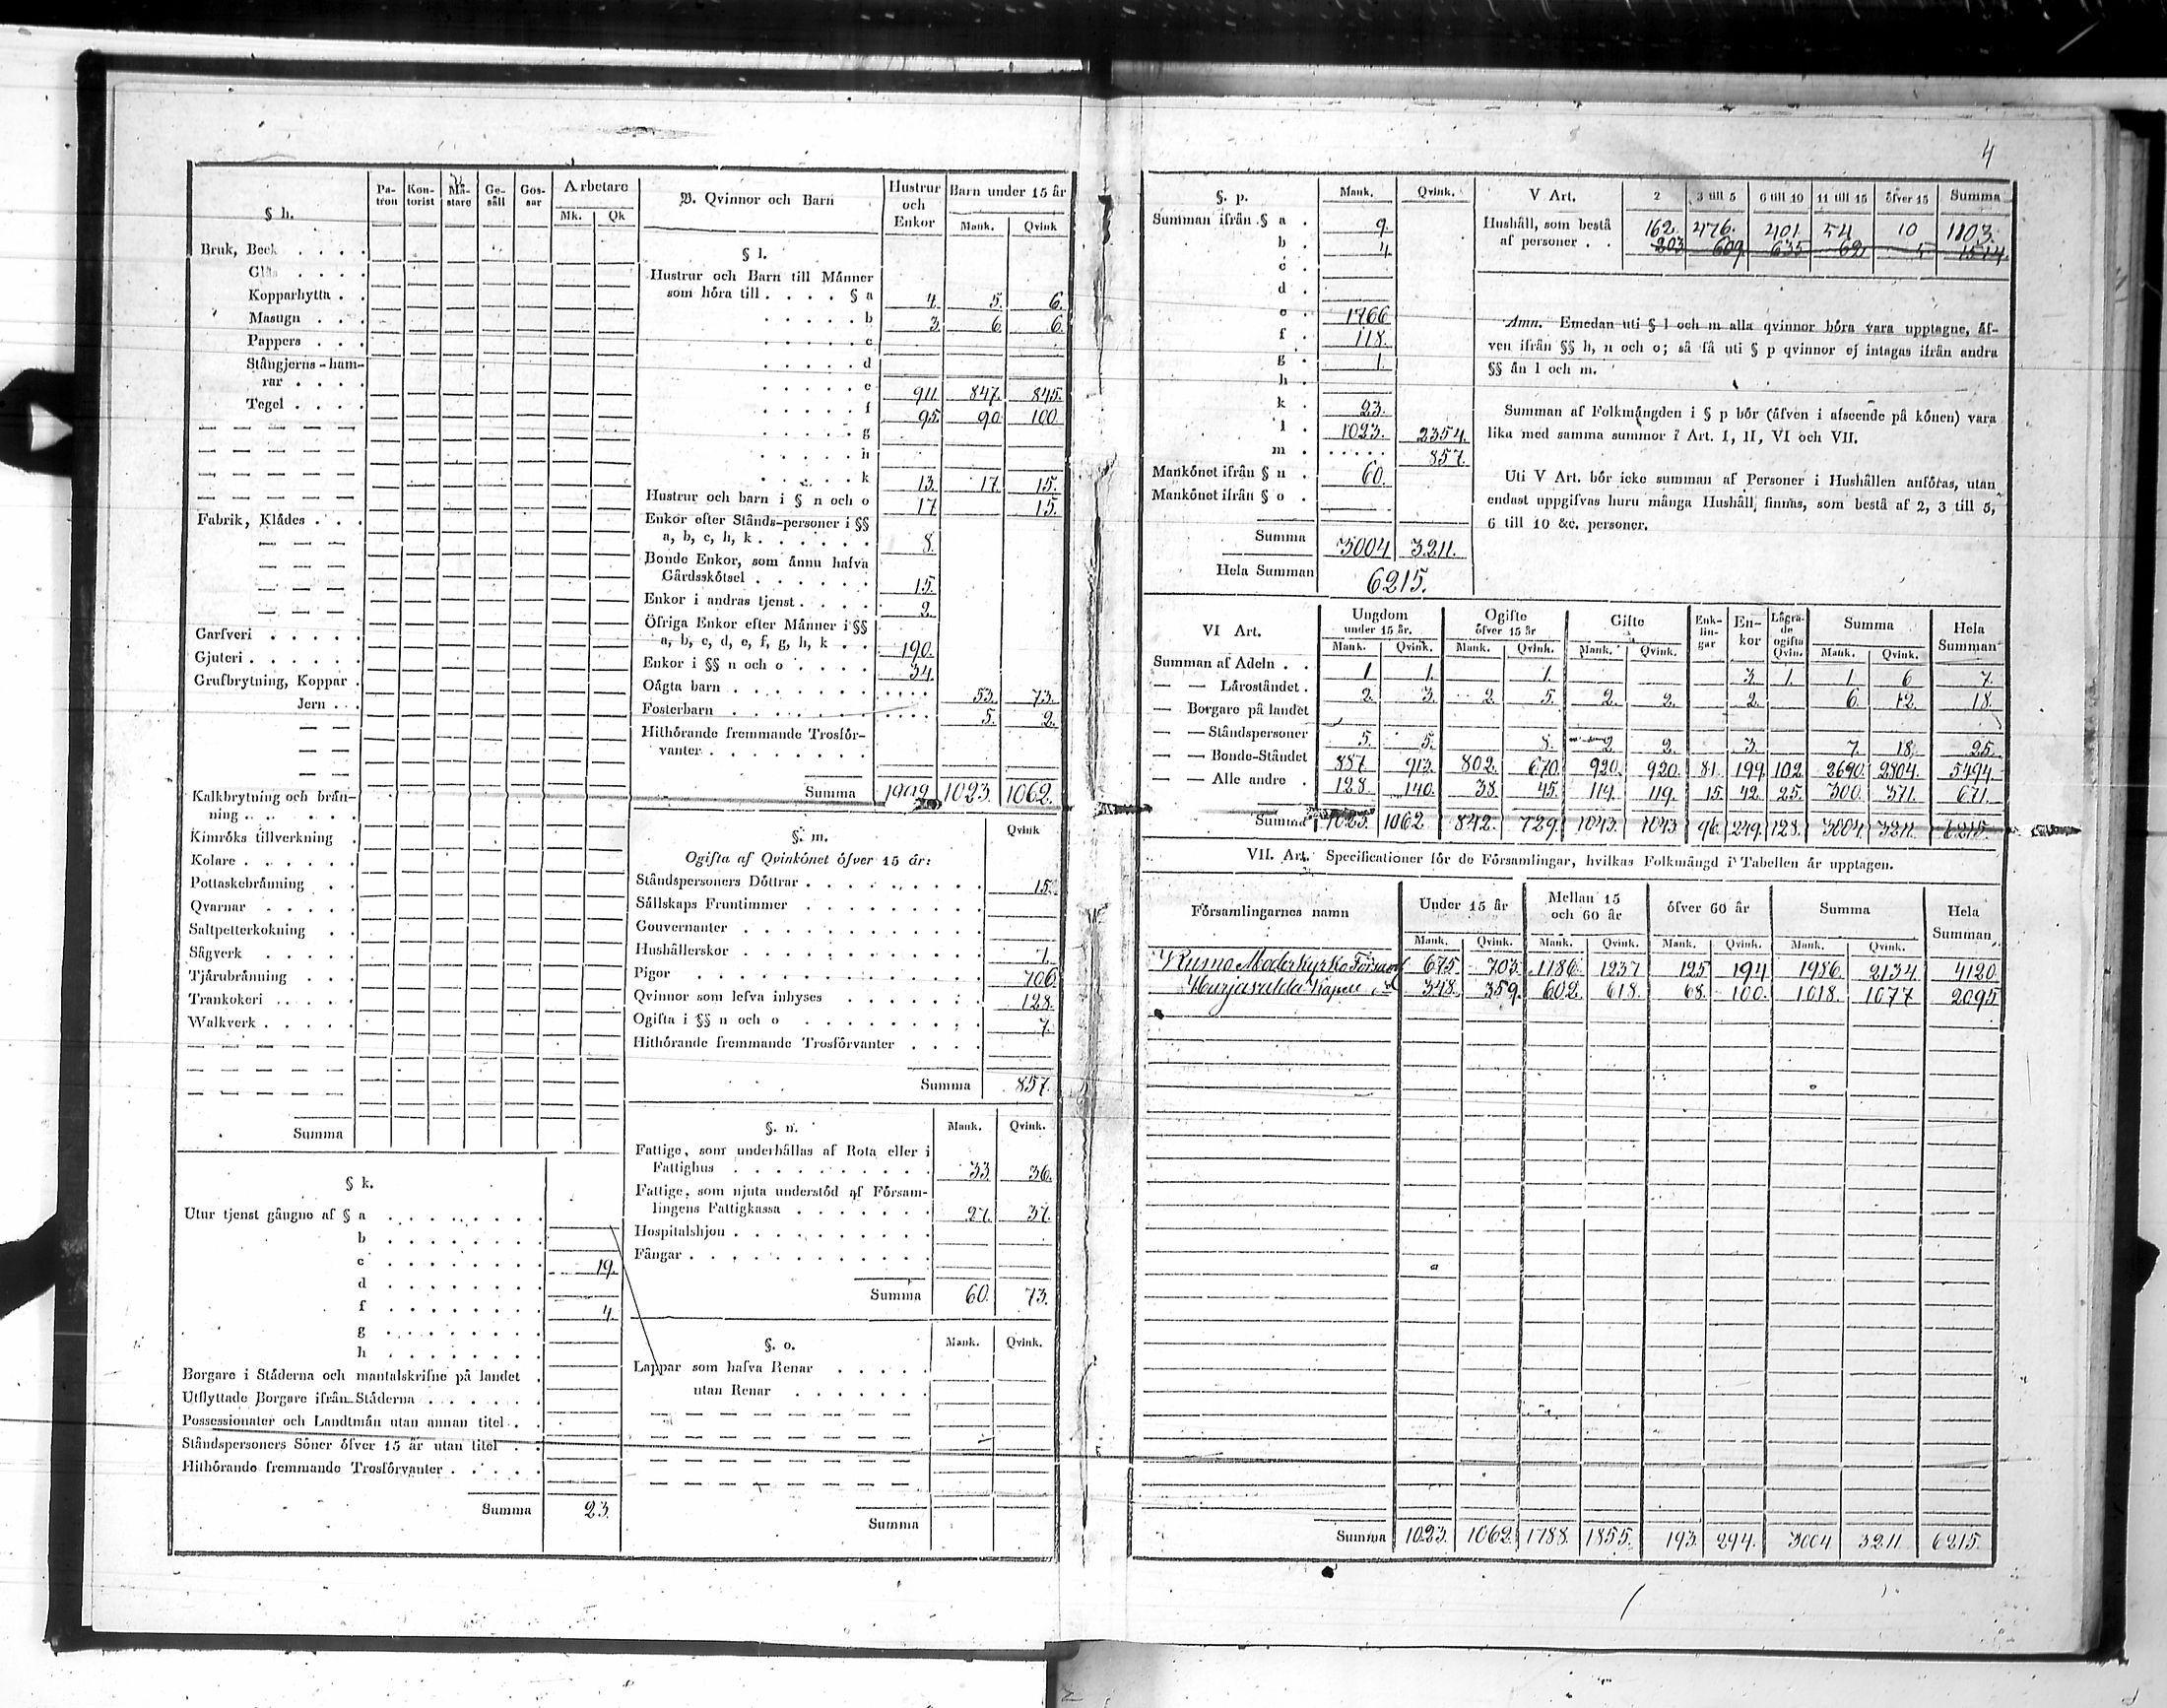 4
§ h.
Pa-
tron
Kon-
torist
Mä-
stare
Ge-
säll
Gos-
sar
Arbetare
Mk. Qk
Bruk, Beck . . . .
Glas . . . .
Kopparhytta . .
Masugn . . .
Pappers . . .
Stångjerns-ham-
rar . . . .
Tegel . . . .
Fabrik, Klädes . . .
Garfveri . . . . .
Gjuteri . . . . . .
Grufbrytning, Koppar .
Jern . . .
Kalkbrytning och brän-
ning . . . . . .
Kimröks tillverkning .
Kolare . . . . . .
Pottaskebränning . .
Qvarnar . . . .
Saltpetterkokning . .
Sågverk . . . . .
Tjärubränning . . .
Trankokeri . . . . .
Walkverk . . . . .
Summa
§ k.
Utur tjenst gångne af § a
b
c 19.
d
f 4.
g
h
Borgare i Städerna och mantalskrifne på landet .
Utflyttade Borgare ifrån Städerna . . . . . .
Possessionater och Landtmän utan annan titel . .
Ståndspersoners Söner öfver 15 år utan titel . .
Hithörande fremmande Trosförvanter . . . . .
Summa 23.
B. Qvinnor och Barn
Hustrur
och
Enkor
Barn under 15 år
Mank. Qvink
§ l.
Hustrur och Barn till Männer
som höra till . . . . § a 4. 5. 6.
b 3 6 6.
c
d
e 911 847. 845.
f 95. 90 100
g
h
k 13. 17. 15.
Hustrur och barn i § n och o 17 15.
Enkor efter Stånds-personer i §§
a, b, c, h, k . . . . . . 8.
Bonde Enkor, som ännu hafva
Gårdsskötsel . . . . . . 15.
Enkor i andras tjenst . . . . 2.
Öfriga Enkor efter Männer i §§
a, b, c, d, e, f, g, h, k . . 190.
Enkor i §§ n och o . . . . 34.
Oägta barn . . . . . . . . . . . 53. 73.
Fosterbarn . . . . . . . . . . . 5. 2.
Hithörande fremmande Trosför-
vanter . . . . . . .
Summa 1023. 1062.
§. m.
Qvink
Ogifta af Qvinkönet öfver 15 år:
Ståndspersoners Döttrar . . . . . . . . . 15.
Sällskaps Fruntimmer . . . . . . . . .
Gouvernanter . . . . . . . . . . .
Hushållerskor . . . . . . . . . . . 1.
Pigor . . . . . . . . . . . . 706
Qvinnor som lefva inhyses . . . . . . . 128.
Ogifta i §§ n och o . . . . . . . . . 7.
Hithörande fremmande Trosförvanter . . . .
Summa 857.
§. n.
Mank. Qvink.
Fattige, som underhållas af Rota eller i
Fattighus . . . . . . . . . . 33 36.
Fattige, som njuta understöd af Försam-
lingens Fattigkassa . . . . . . . 27. 37.
Hospitalshjon . . . . . . . . . .
Fångar . . . . . . . . . . . .
Summa 60. 73.
§. o.
Mank. Qvink.
Lappar som hafva Renar . . . .
utan Renar . . . . . .
Summa
§. p.
Mank. Qvink.
Summan ifrån § a . 9.
b . 4.
c .
d .
e . 1766
f . 118.
g . 1.
h .
k . 23.
l . 1023. 2354.
m . . . . . . 857.
Mankönet ifrån § n . 60.
Mankönet ifrån § o .
Summa 3004 3211.
Hela Summan 6215.
V Art. 2 3 till 5 6 till 10 11 till 15 öfver 15 Summa
Hushåll, som bestå 162. 476. 401. 54 10 1103.
af personer . . 203 609 635 62 5 1514.
Anm. Emedan uti § l och m alla qvinnor böra vara upptagne, äf-
ven ifrån §§ h, n och o; så få uti § p qvinnor ej intagas ifrån andra
§§ än l och m.
Summan af Folkmängden i § p bör (äfven i afseende på könen) vara
lika med samma summor i Art. I, II, VI och VII.
Uti V Art. bör icke summan af Personer i Hushållen anföras, utan
endast uppgifvas huru många Hushåll finnas, som bestå af 2, 3 till 5,
6 till 10 &c. personer.
VI Art.
Ungdom
under 15 år.
Ogifte
öfver 15 år
Gifte
Enk-
lin-
gar
En-
kor
Lägra-
de
ogifta
Qvin.
Summa
Hela
Summan
Mank. Qvink. Mank. Qvink. Mank. Qvink. Mank. Qvink.
Summan af Adeln . . 1 1. 1. 3. 1. 1. 6 7.
— — Läroståndet . 2. 3. 2. 5. 2. 2. 2. 6. 12. 18.
— Borgare på landet
— — Ståndspersoner 5. 5. 8. 2 2. 3. 7. 18. 25.
— — Bonde-Ståndet 887. 913. 802. 670. 920. 920. 81. 199. 102 2690. 2804. 5494.
— — Alle andre . 128. 140. 38. 45. 119. 119. 15. 42. 25. 300. 371. 671.
Summa 1023. 1062 842. 729. 1043. 1043 96. 249. 128. 3004. 3211. 6215.
VII. Art. Specificationer för de Församlingar, hvilkas Folkmängd i Tabellen är upptagen.
Församlingarnes namn
Under 15 år
Mellan 15
och 60 år
öfver 60 år
Summa
Hela
Summan
Mank. Qvink. Mank. Qvink. Mank. Qvink. Mank. Qvink.
Moderkyrko 675 703. 1186. 1237 125 194 1986. 2134. 4120.
Kapell 348. 359. 602. 618. 68. 100. 1018. 1077 2095
Summa 1023. 1062. 1788. 1855. 193. 294. 3004 3211 6215.